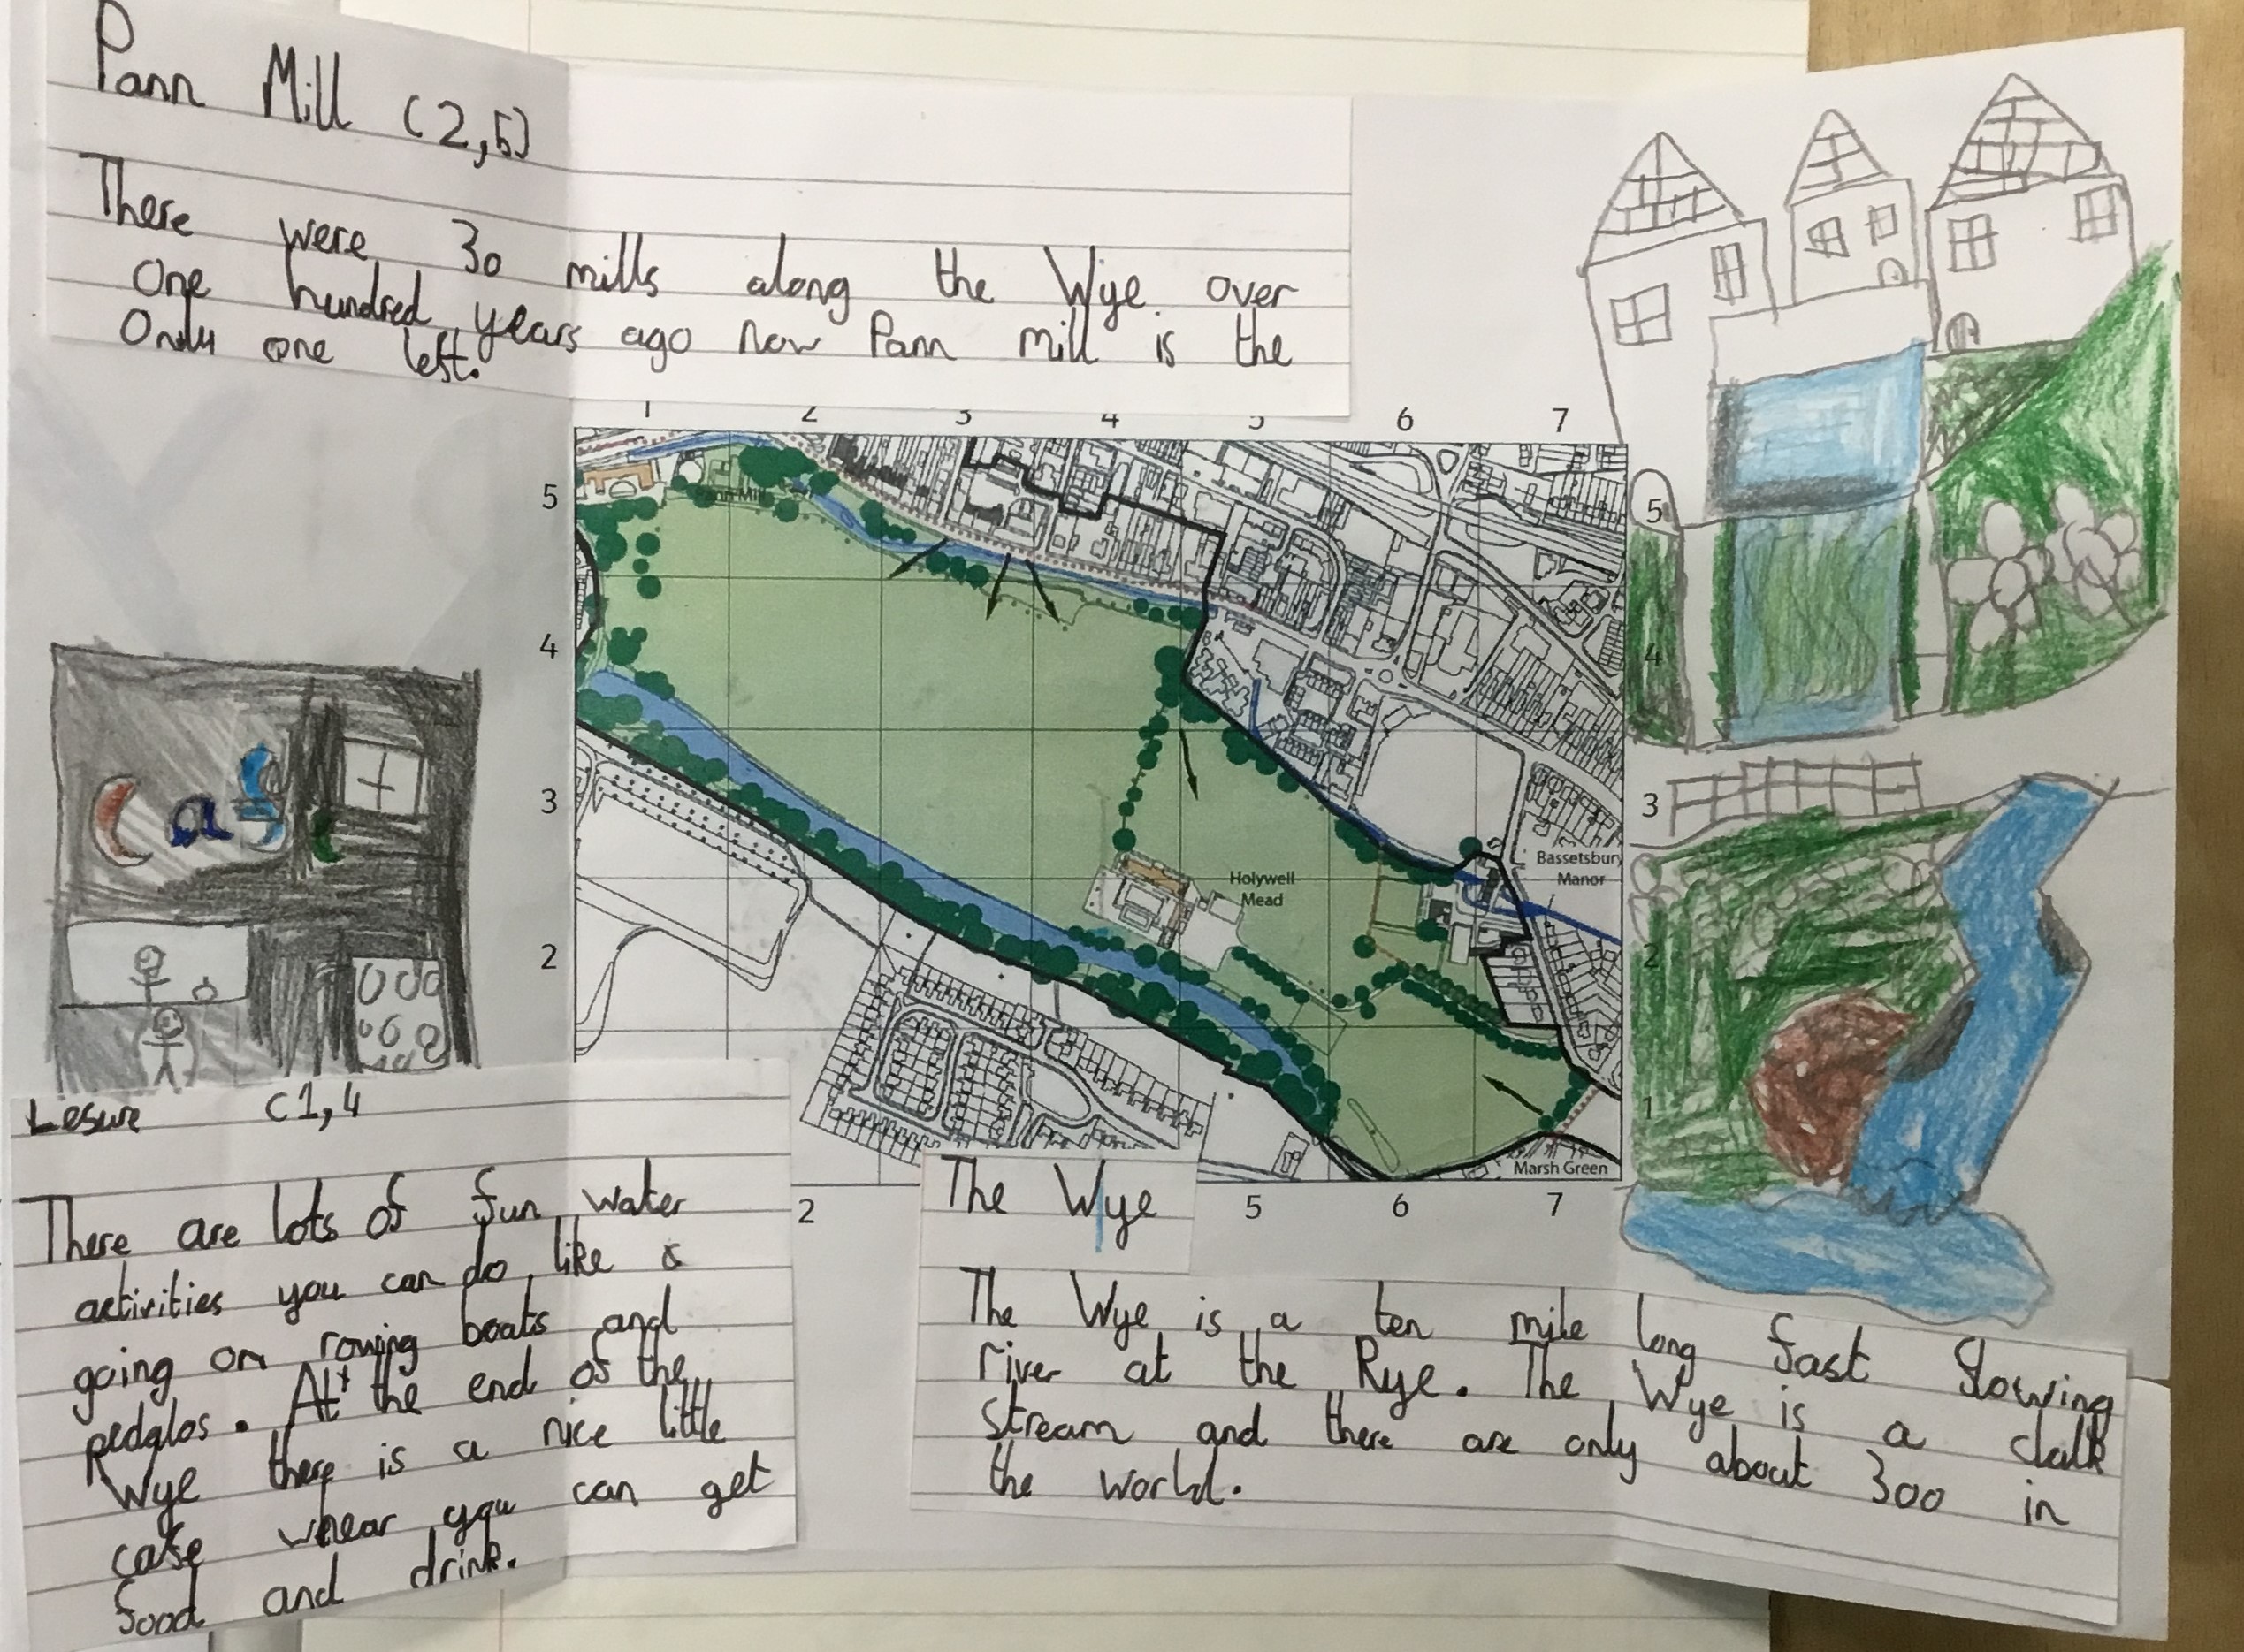 Pann Mill (2,5)
There were 30 mills along the Wye over
One hundred years ago now Pann mill is the
Only one left.
1 2 3 4 5 6 7
5
4
3
2
5
4
3
2
1
Pann Mill
Holywell
Mead
Bassetsbury
Manor
Marsh Green
2 5 6 7
Cafe
Lesure (1,4
There are lots of fun water
activities you can do like
going on rowing boats and
pedglos. At the end of the
Wye there is a nice little
cafe whear you can get
food and drink.
The Wye
The Wye is a ten mile long fast flowing
river at the Rye. The Wye is a chalk
stream and there are only about 300 in
the world.